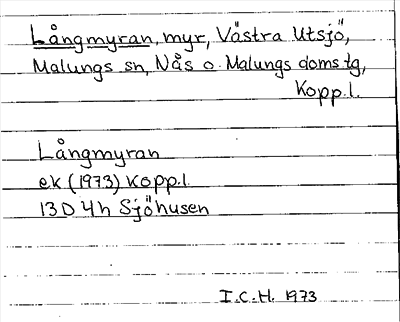 Långmyran, myr, Västra Utsjö,
Malungs sn, Nås o. Malungs doms tg,
Kopp.l.
Långmyran
ek (1973) Kopp.l.
13D 4h Sjöhusen
I.C.H. 1973